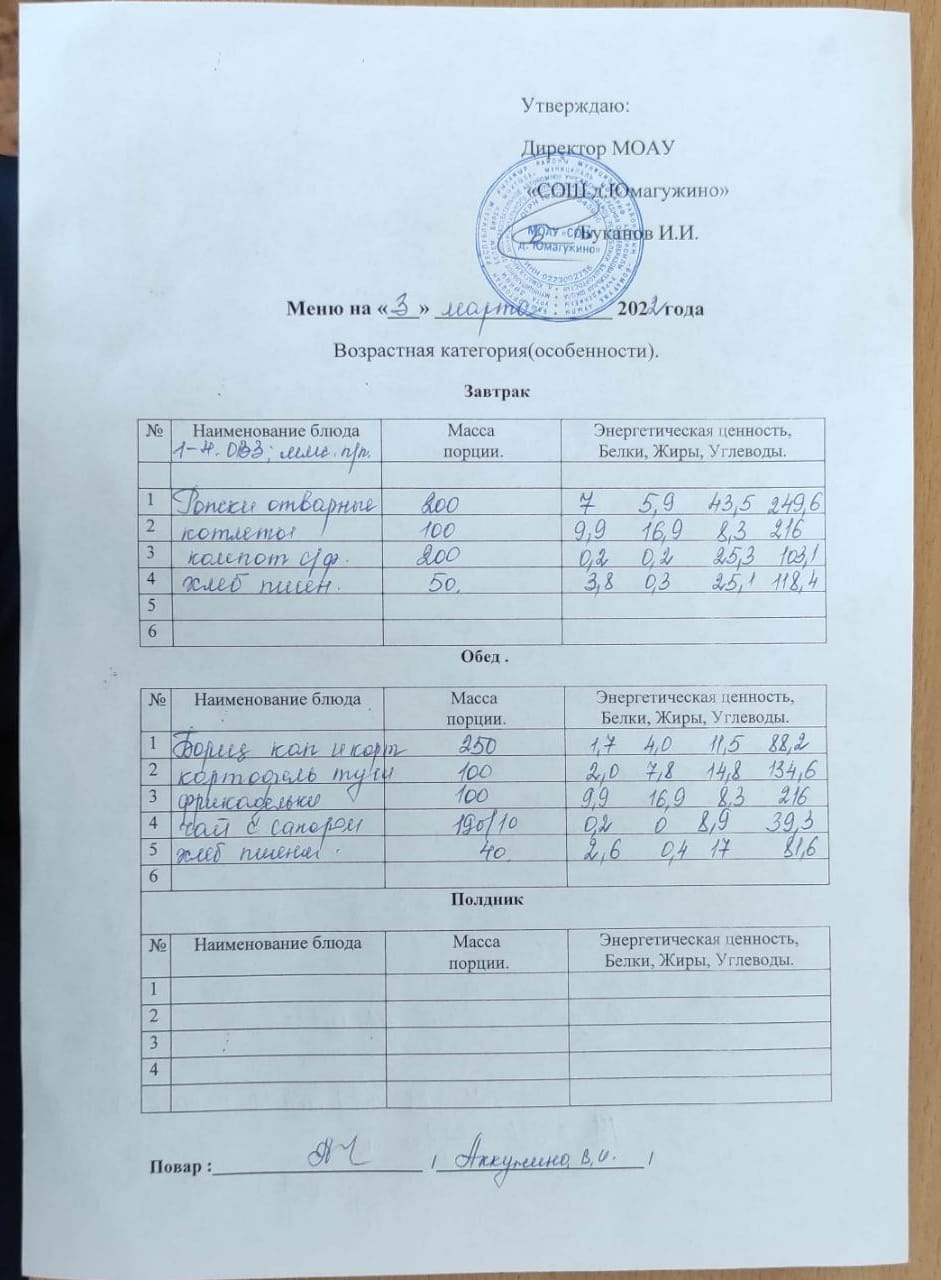 Утверждаю:
Директор МОАУ
«СОШ д.Юмагужино»
Буканов И.И.
МОАУ «СОШ
д. Юмагужино»
ИНН 0223002756
Меню на «3» марта 2022 года
Возрастная категория(особенности).
Завтрак
№ Наименование блюда Масса порции. Энергетическая ценность, Белки, Жиры, Углеводы.
1-4. ОВЗ;
1 Рожски отварные 200 7 5,9 43,5 249,6
2 котлеты 100 9,9 16,9 8,3 216
3 компот с/ф. 200 0,2 0,2 25,3 103,1
4 хлеб пшен. 50. 3,8 0,3 25,1 118,4
5
6
Обед .
№ Наименование блюда Масса порции. Энергетическая ценность, Белки, Жиры, Углеводы.
1 Борщ кап и карт 250 1,7 4,0 11,5 88,2
2 картофель туш 100 2,0 7,8 14,8 134,6
3 фрикадельки 100 9,9 16,9 8,3 216
4 чай с сахаром 190/10 0,2 0 8,9 39,3
5 хлеб пшенич. 40. 2,6 0,4 17 81,6
6
Полдник
№ Наименование блюда Масса порции. Энергетическая ценность, Белки, Жиры, Углеводы.
1
2
3
4
Повар : / Аккужина В.И. /